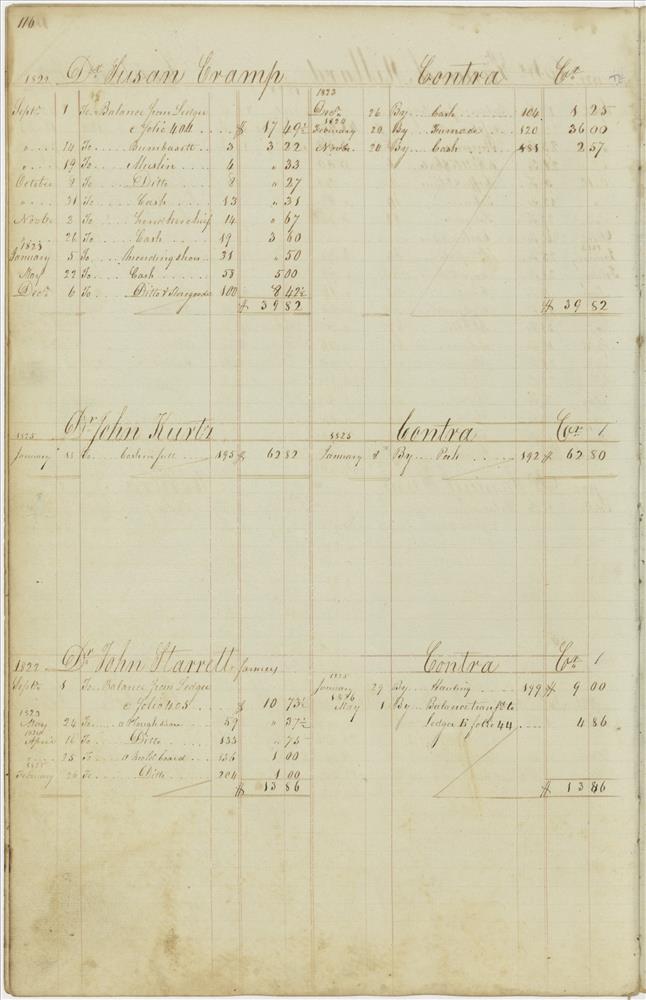 116
1822 Dr. Susan Cramp Contra Cr.
1823
Septr. 1 To Balance from Ledger Decr. 26 By Cash 104 1 25
C folio 404 $ 17 49½ 1824 February 20 By 120 36 00
" 14 To Bumbazett 3 3 22 Novbr. 20 By Cash 2 57
" 19 To Muslin 4 " 33
October 8 To Ditto 8 " 27
" 31 To Cash 13 " 31
Novbr. 2 To handkerchief 14 " 67
" 26 To Cash 19 3 60
1823
January 5 To Mending shoes 31 " 50
May 22 To Cash 58 5 00
Decr. 6 To Ditto & Storegoods 100 8 42½
$ 39 82 $ 39 82
Dr. John Kurtz Contra Cr.
1825 1825
January 8 To Cash in full 195 $ 62 82 January 8 By Pork 192 $ 62 80
1822 Dr. John Starrett farmer Contra Cr.
Septr. 1 To Balance from Ledger 1825 January 29 By Hauling 199 $ 9 00
C folio 405 $ 10 73½ 1826 May 1 By Balance tranfd. to
1823
May 24 To a Plough share 59 " 37½ Ledger E folio 44 4 86
1824
April 16 To Ditto 133 " 75
" 25 To a Mold board 136 1 00
1825
February 26 To Ditto 204 1 00
$ 13 86 $ 13 86